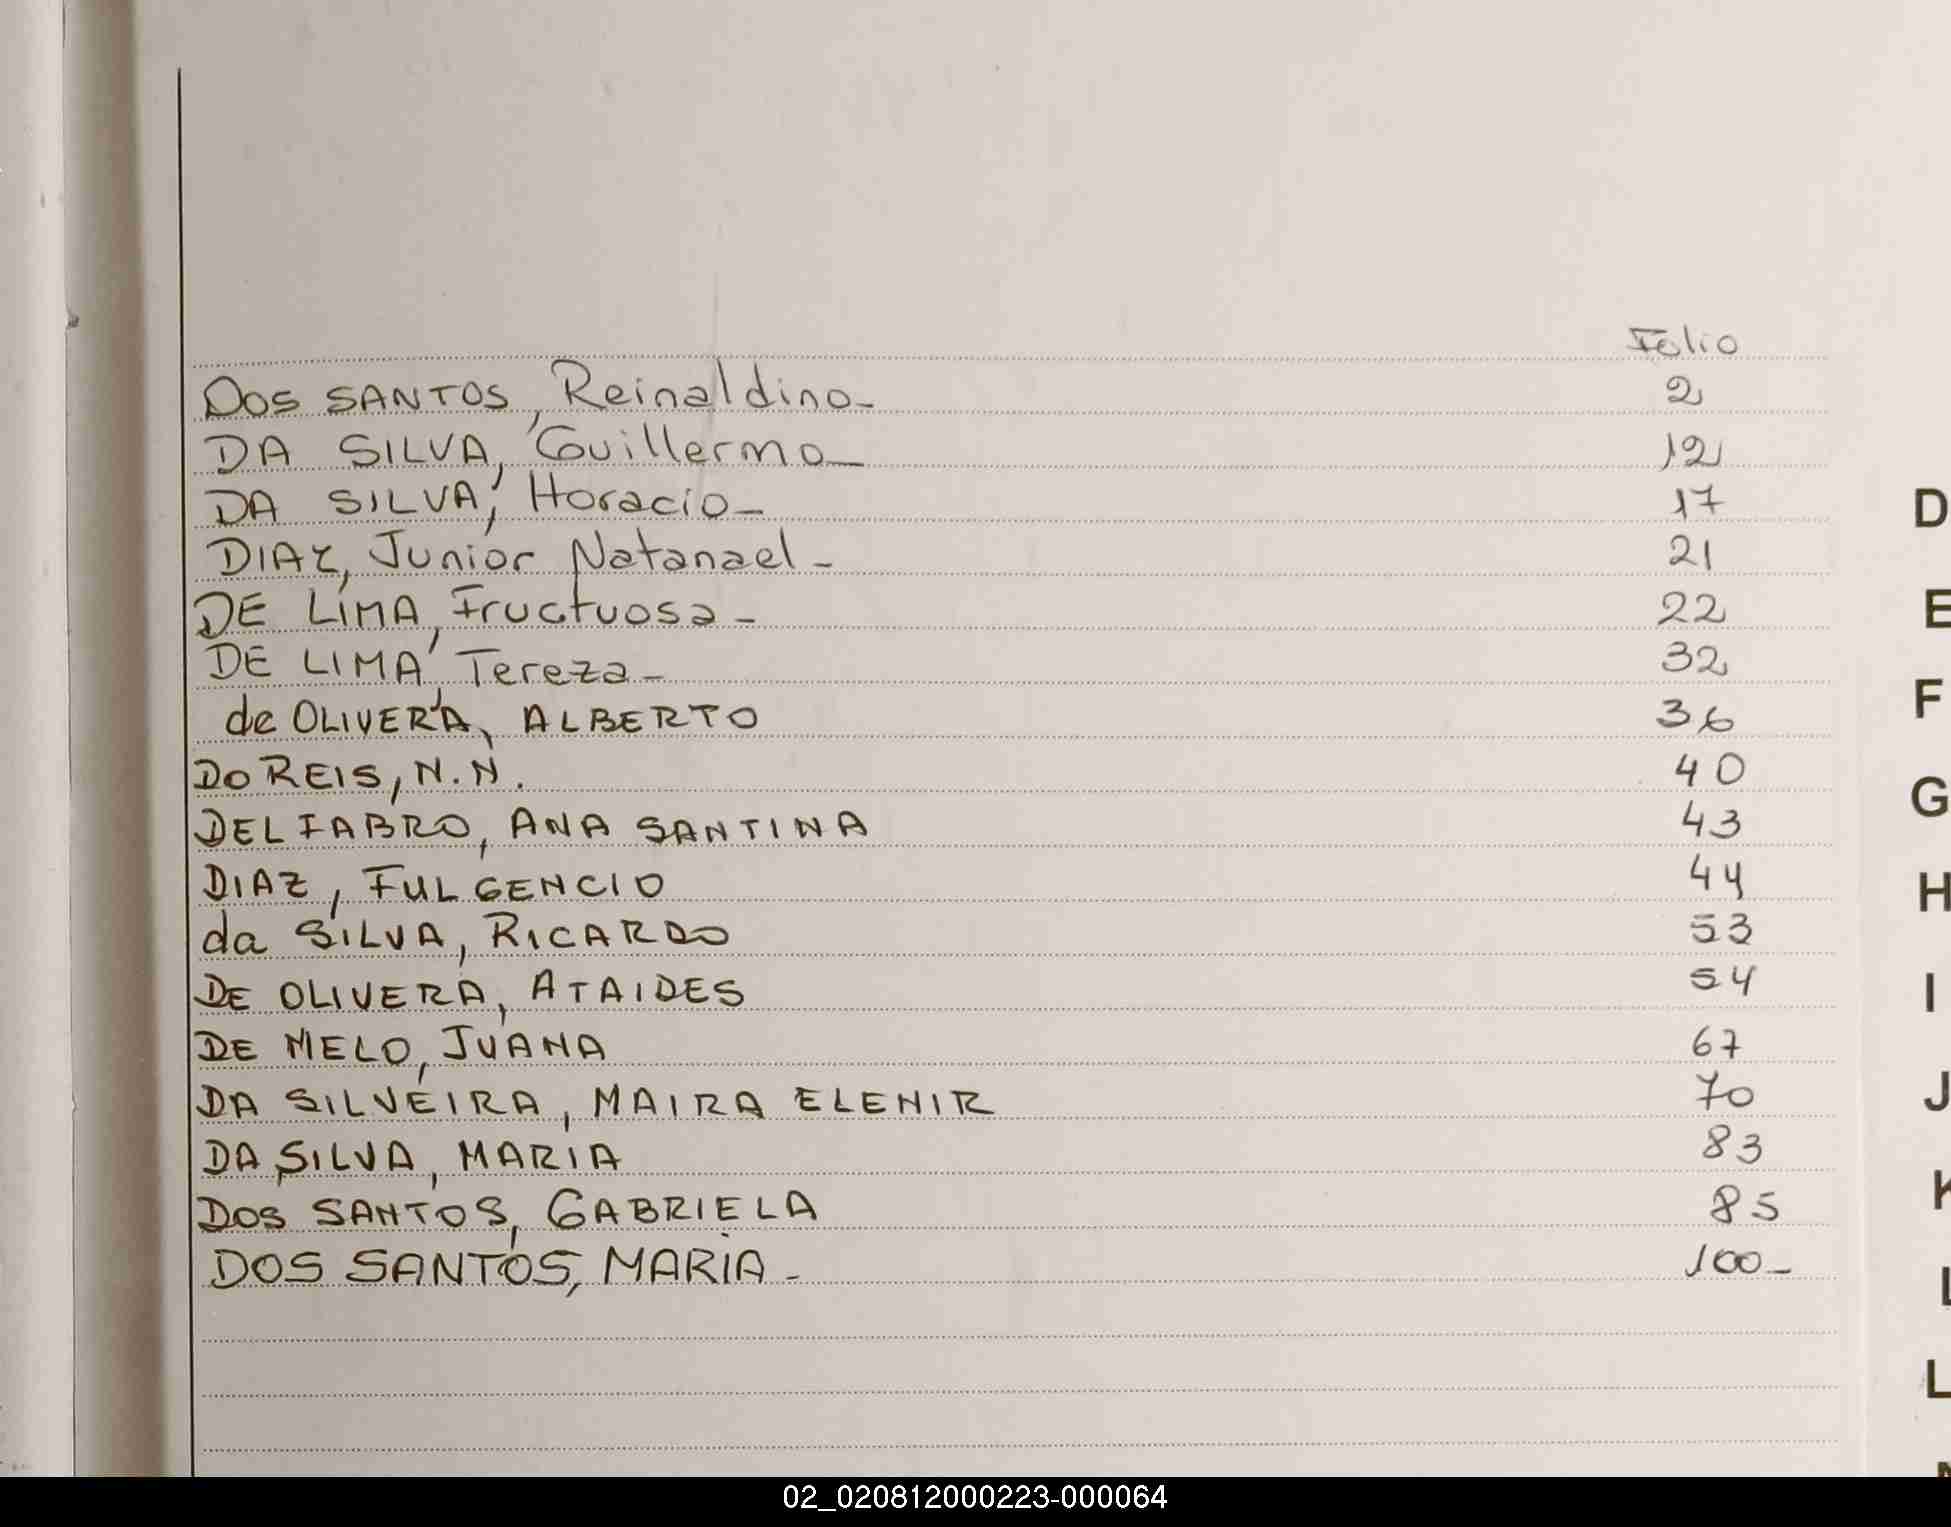 Folio
DOS SANTOS, Reinaldino- 2
DA SILVA, Guillermo- 12
DA SILVA, Horacio- 17
DIAZ, Junior Natanael- 21
DE LIMA, Fructuosa- 22
DE LIMA, Tereza- 32
de OLIVERA, ALBERTO 36
DO REIS, N.N. 40
DEL FABRO, ANA SANTINA 43
DIAZ, FULGENCIO 44
da SILVA, RICARDO 53
DE OLIVERA, ATAIDES 54
DE MELO, JUANA 67
DA SILVEIRA, MAIRA ELENIR 70
DA SILVA, MARIA 83
DOS SANTOS, GABRIELA 85
DOS SANTOS, MARIA- 100-
D
E
F
G
H
I
J
K
L
L
02_020812000223-000064